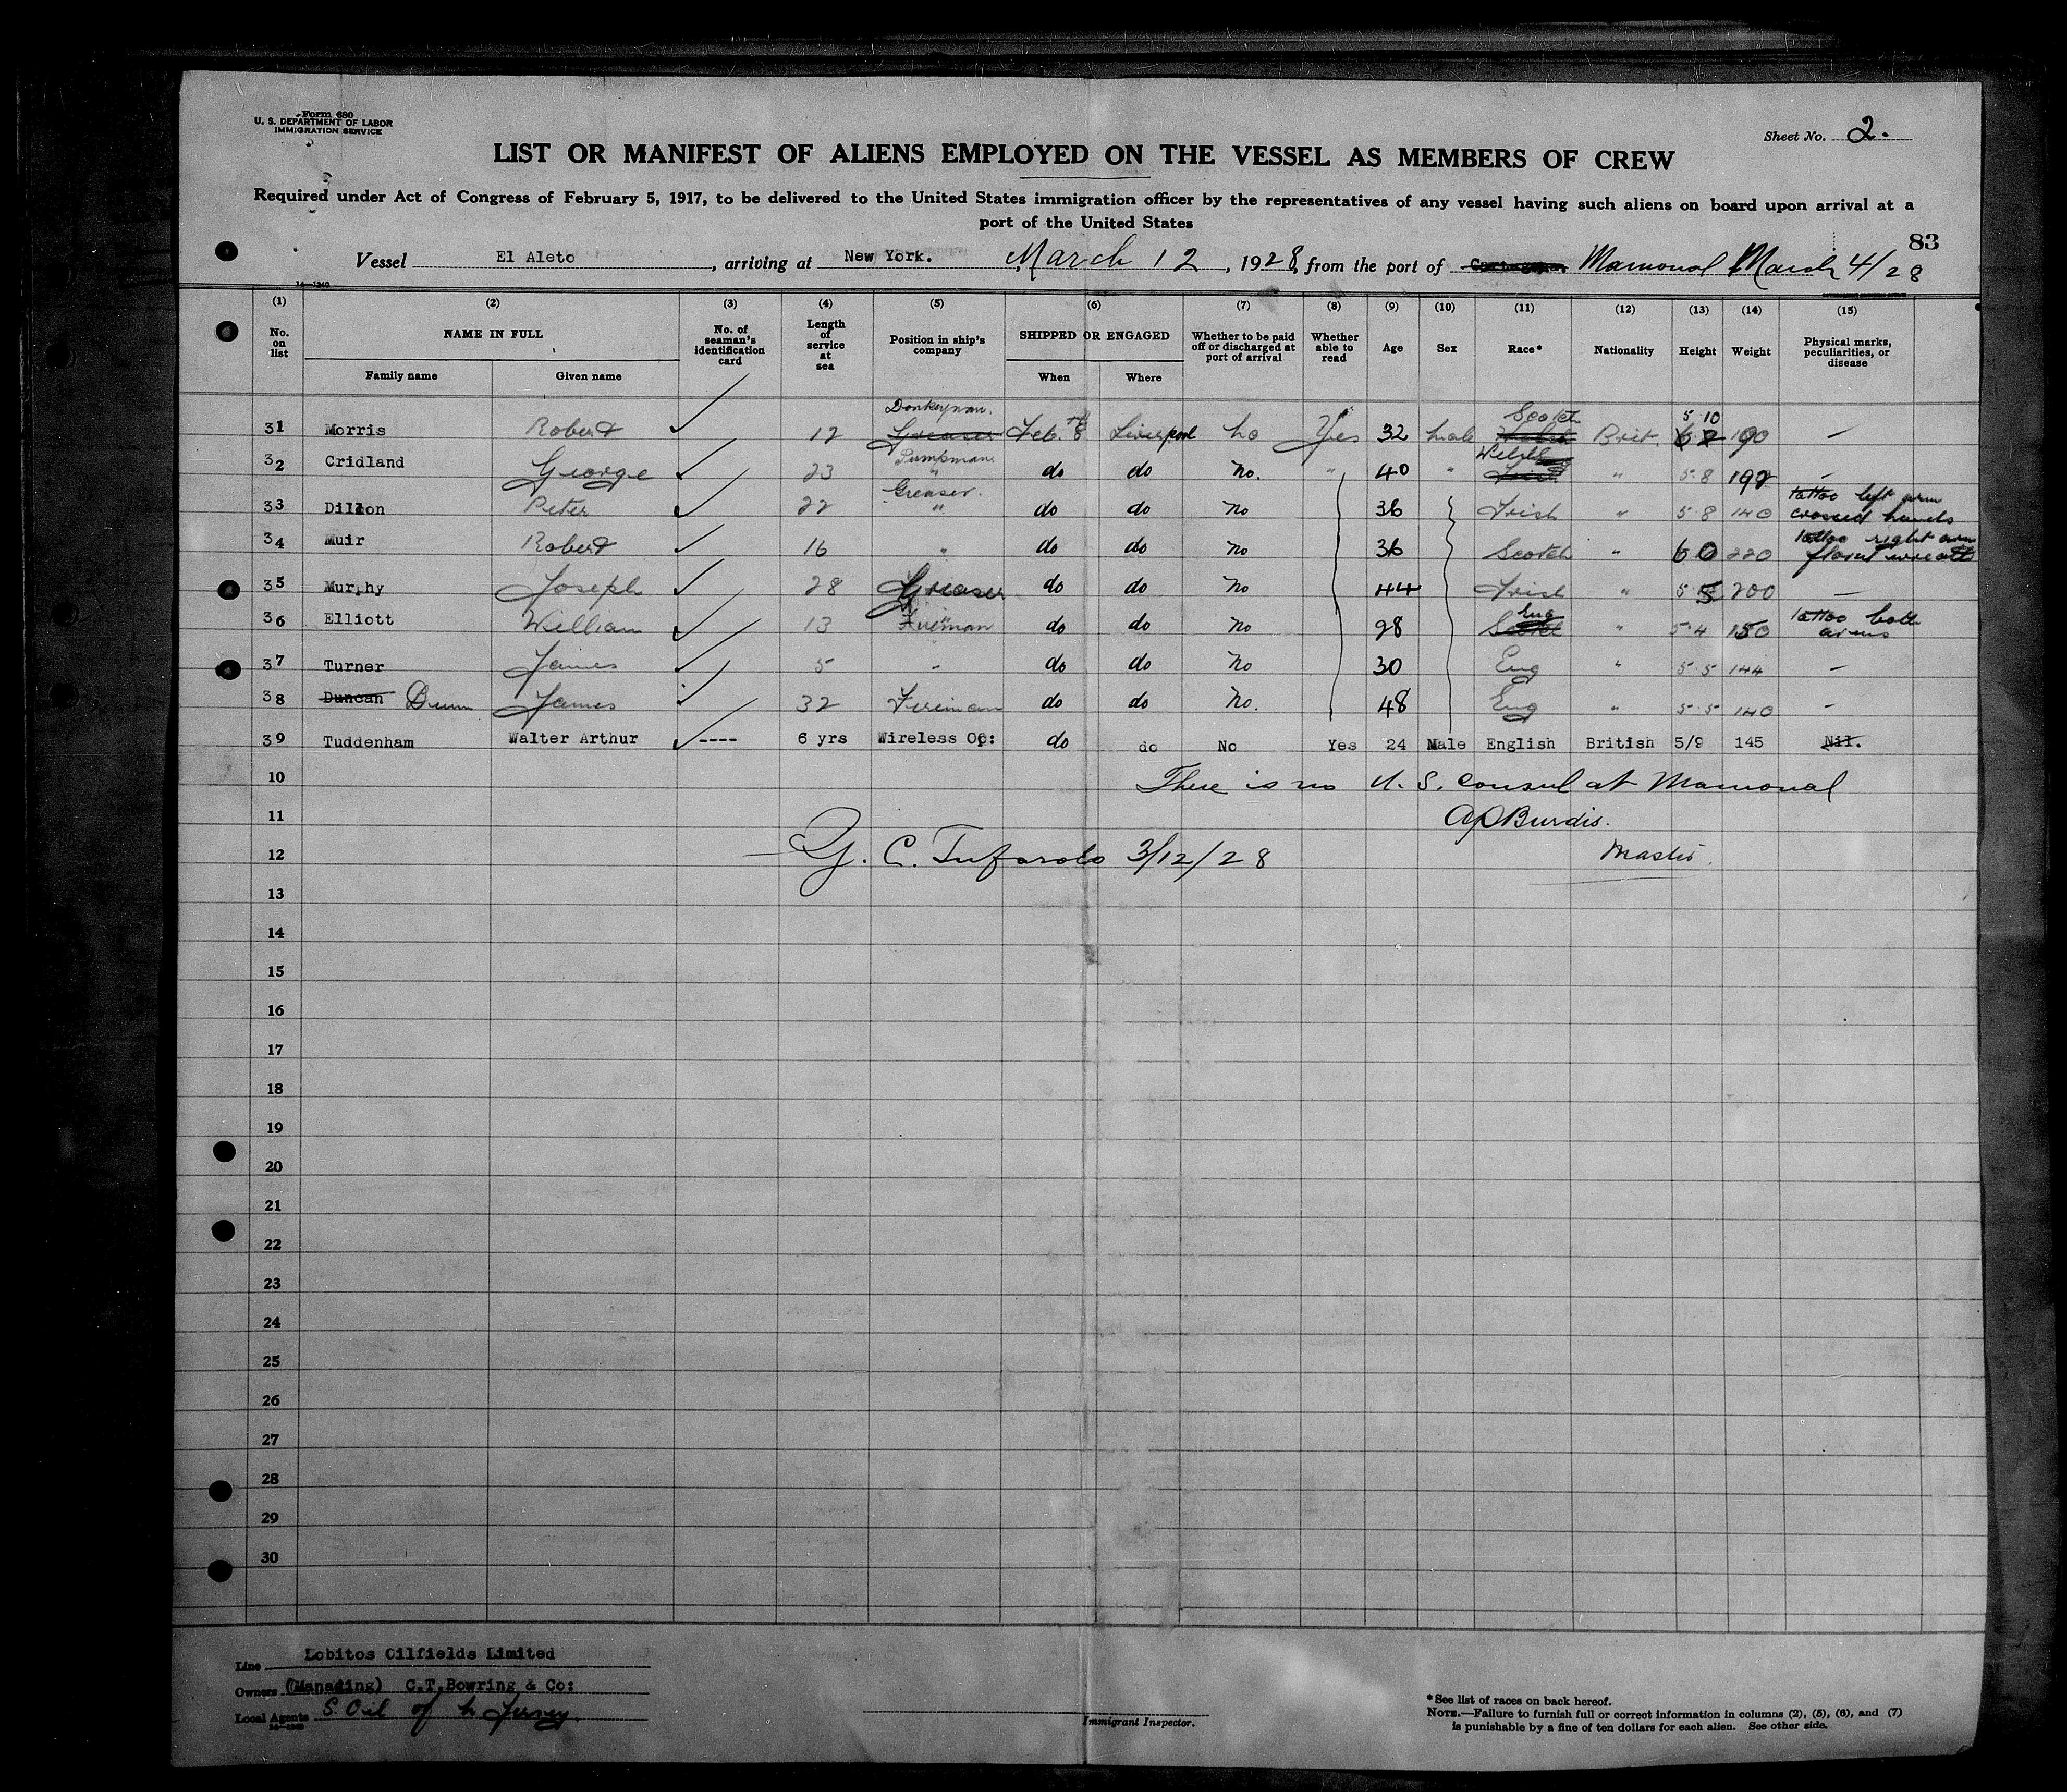 Form 680
U. S. DEPARTMENT OF LABOR
IMMIGRATION SERVICE
Sheet No. 2.
LIST OR MANIFEST OF ALIENS EMPLOYED ON THE VESSEL AS MEMBERS OF CREW
Required under Act of Congress of February 5, 1917, to be delivered to the United States immigration officer by the representatives of any vessel having such aliens on board upon arrival at a
port of the United States
83
Vessel El Aleto, arriving at New York. March 12, 1928, from the port of Mamonal March 4/28
14—1240
(1) (2) (3) (4) (5) (6) (7) (8) (9) (10) (11) (12) (13) (14) (15)
No. on list NAME IN FULL Family name Given name No. of seaman's identification card Length of service at sea Position in ship's company SHIPPED OR ENGAGED When Where Whether to be paid off or discharged at port of arrival Whether able to read Age Sex Race* Nationality Height Weight Physical marks, peculiarities, or disease
31 Morris Robert 12 Donkeyman. Greaser Feb. 8th Liverpool no Yes 32 male Scotch Brit. 5 10 190 —
32 Cridland George 23 Pumpman " do do No. " 40 " Welsh " 5 8 192 —
33 Dillon Peter 22 Greaser. " do do No 36 Irish " 5 8 140 tattoo left arm crossed hands
34 Muir Robert 16 " do do No 36 Scotch " 6 0 220 tattoo right arm floral wreath
35 Murphy Joseph 28 Greaser do do No 44 Irish " 5 5 200 —
36 Elliott William 13 Fireman do do No 28 Eng Scotch " 5 4 150 tattoo both arms
37 Turner James 5 " do do No 30 Eng " 5 5 144 —
38 Duncan Dunn James 32 Fireman do do No. 48 Eng " 5 5 140 —
39 Tuddenham Walter Arthur ---- 6 yrs Wireless Op: do do No Yes 24 Male English British 5/9 145 Nil.
10 There is no U. S. Consul at Mamonal
11 Burdis.
12 G. C. Tufarolo 3/12/28 Master.
13
14
15
16
17
18
19
20
21
22
23
24
25
26
27
28
29
30
Line Lobitos Oilfields Limited
Owners (Managing) C.T.Bowring & Co:
Local Agents S. Oil of N Jersey
14—1240
Immigrant Inspector.
*See list of races on back hereof.
NOTE.—Failure to furnish full or correct information in columns (2), (5), (6), and (7)
is punishable by a fine of ten dollars for each alien. See other side.